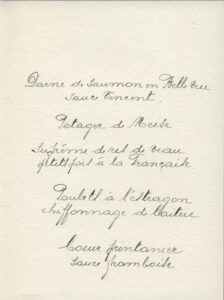 Darne de Saumon en Belle Vue
Sauce Vincent.
Potager de Meise
Suprême de ris de veau
petits pois à la Française
Poulets à l'estragon
chiffonnage de laitue
Coeur printanier
Sauce framboise